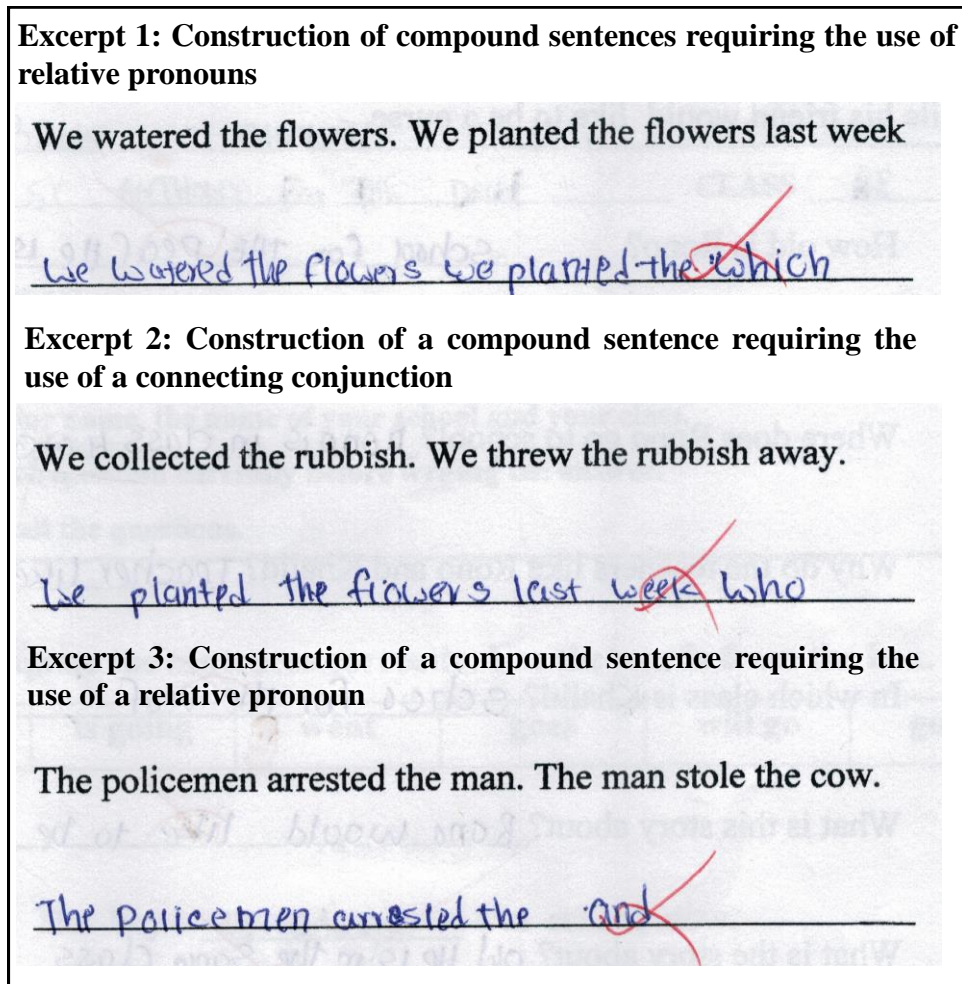 Excerpt 1: Construction of compound sentences requiring the use of
relative pronouns
We watered the flowers. We planted the flowers last week
We watered the flowers we planted the which
Excerpt 2: Construction of a compound sentence requiring the
use of a connecting conjunction
We collected the rubbish. We threw the rubbish away.
We planted the flowers last week who
Excerpt 3: Construction of a compound sentence requiring the
use of a relative pronoun
The policemen arrested the man. The man stole the cow.
The policemen arrested the and